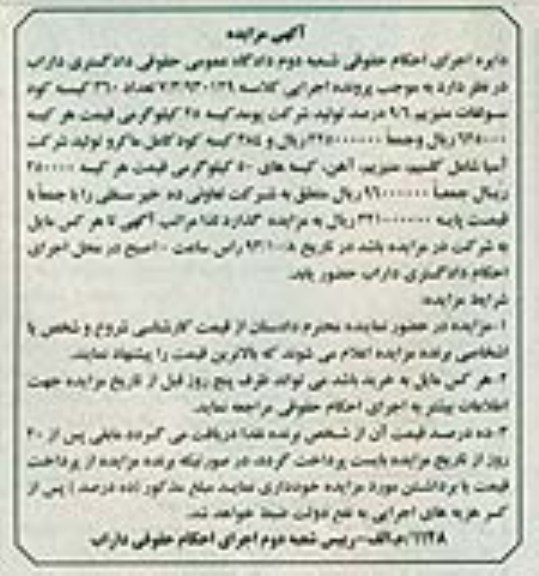 آگهی مزایده
دایره اجرای احکام حقوقی شعبه دوم دادگاه عمومی حقوقی دادگستری داراب
در نظر دارد به موجب پرونده اجرایی کلاسه ۷/۳/۹۳۰۱۲۹ تعداد ۳۶۰ کیسه کود
سولفات منیزیم ۹/۶ درصد تولید شرکت کیسه ۲۵ کیلوگرمی قیمت هر کیسه
ریال وجمعاً ریال و کیسه کود کامل ماکرو تولید شرکت
آسیا شامل کلسیم، منیزیم، آهن، کیسه های ۵۰ کیلوگرمی قیمت هر کیسه
ریال جمعاً ریال متعلق به شرکت تعاونی ده خیر سفلی را با جمعاً با
قیمت پایه ریال به مزایده گذارد لذا مراتب آگهی تا هر کس مایل
به شرکت در مزایده باشد در تاریخ راس ساعت ۱۰ صبح در محل اجرای
احکام دادگستری داراب حضور یابد.
شرایط مزایده:
۱-مزایده در حضور نماینده محترم دادستان از قیمت کارشناسی شروع و شخص یا
اشخاصی برنده مزایده اعلام می شوند که بالاترین قیمت را پیشنهاد نمایند.
۲-هر کس مایل به خرید باشد می تواند ظرف پنج روز قبل از تاریخ مزایده جهت
اطلاعات بیشتر به اجرای احکام حقوقی مراجعه نماید.
۳-ده درصد قیمت آن از شخص برنده نقدا دریافت می گردد مابقی پس از ۲۰
روز از تاریخ مزایده بایست پرداخت گردد، در صورتیکه برنده مزایده از پرداخت
قیمت یا برداشتن مورد مزایده خودداری نماید مبلغ مذکور (ده درصد) پس از
کسر هزینه های اجرایی به نفع دولت ضبط خواهد شد.
۱۱۲۸/م‌الف-رییس شعبه دوم اجرای احکام حقوقی داراب